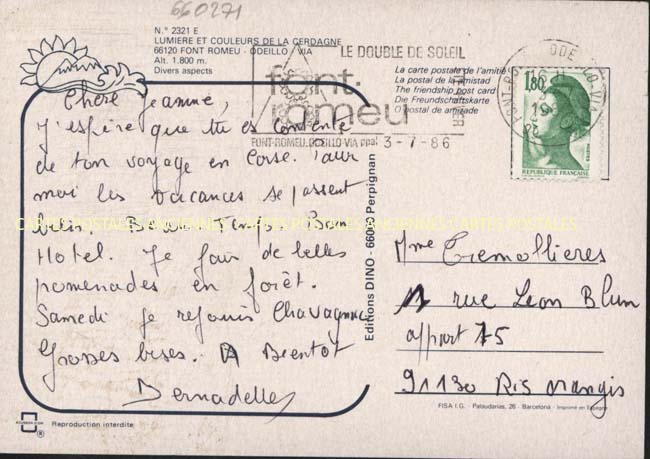 660271
N.° 2321 E
LUMIERE ET COULEURS DE LA CERDAGNE
66120 FONT ROMEU - ODEILLO VIA
Alt. 1.800 m.
Divers aspects
LE DOUBLE DE SOLEIL
font-
romeu
FONT-ROMEU.ODEILLO-VIA ppal
3-7-86
La carte postale de l'amitié
La postal de la amistad
The friendship post card
Die Freundschaftskarte
O postal de amizade
1,80
REPUBLIQUE FRANÇAISE
Chère Jeanne,
J'espère que tu es contente
de ton voyage en Corse. Pour
moi les vacances se passent
bien. Beau Temps. Bon
Hotel. Je fais de belles
promenades en forêt.
Samedi je rejoins Chavagnac
Grosses bises. A Bientôt
Bernadette
CARTES POSTALES ANCIENNES CARTES POSTALES ANCIENNES CARTES POSTALES
Editions DINO - 66000 Perpignan
Mme Tremollieres
1 rue Leon Blum
appart 75
91130 Ris orangis
FISA I.G. - Palaudarias, 26 - Barcelona - Imprimé en Espagne
Reproduction interdite